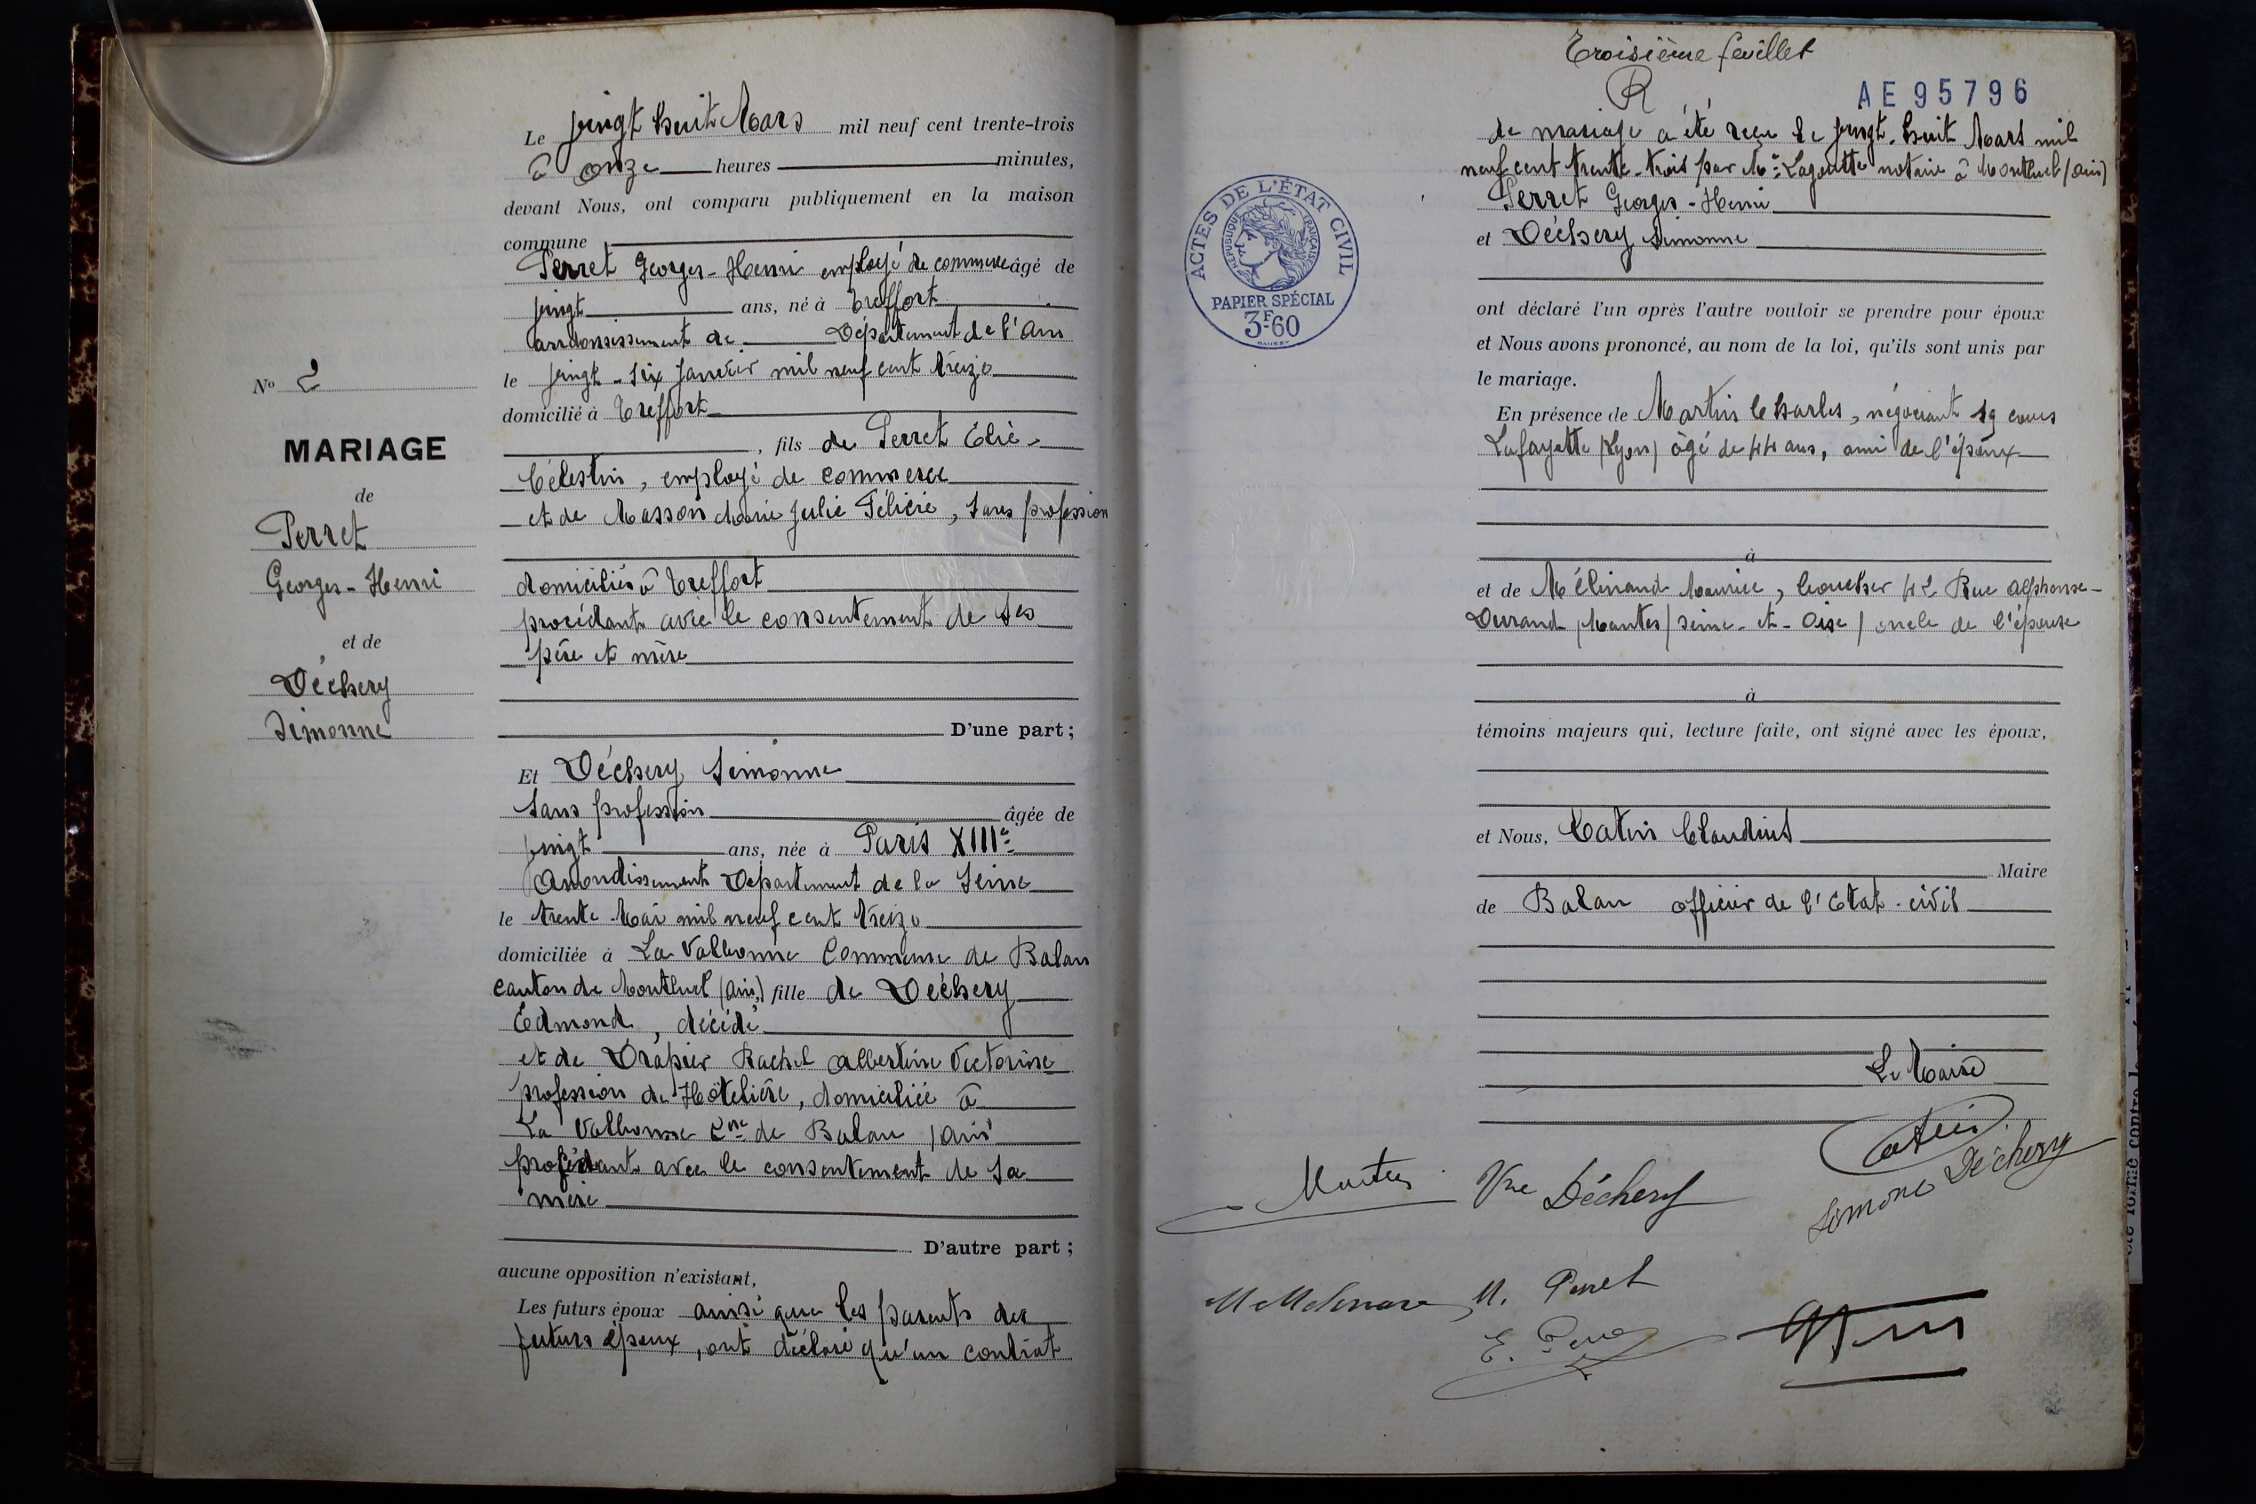 Le vingt huit Mars mil neuf cent trente-trois
à onze heures minutes,
devant Nous, ont comparu publiquement en la maison
commune
Perret Georges-Henri employé de commerce âgé de
vingt ans, né à Treffort
arrondissement de Département de l'Ain
le vingt-six Janvier mil neuf cent treize
domicilié à Treffort
, fils de Perret Élie
Célestin, employé de commerce
et de Masson Marie Julie Félicie, sans profession
domiciliés à Treffort
procédant avec le consentement de ses
père et mère
D'une part;
No 2
MARIAGE
de
Perret
Georges-Henri
et de
Déchery
Simonne
Et Déchery Simonne
sans profession âgée de
vingt ans, née à Paris XIIIe
Arrondissement Département de la Seine
le trente Mai mil neuf cent treize
domiciliée à La Valbonne Commune de Balan
canton de Montluel (Ain) fille de Déchery
Edmond, décédé
et de Drapier Rachel Albertine Victorine
profession de Hôtelière, domiciliée à
La Valbonne Cne de Balan (Ain)
procédant avec le consentement de sa
mère
D'autre part;
aucune opposition n'existant,
Les futurs époux ainsi que les parents des
futurs époux, ont déclaré qu'un contrat
Troisième feuillet
R
AE95796
de mariage a été reçu le vingt-huit Mars mil
neuf cent trente-trois par Me Lagoutte notaire à Montluel (Ain)
Perret Georges-Henri
et Déchery Simonne
ACTES DE L'ÉTAT CIVIL
RÉPUBLIQUE FRANÇAISE
PAPIER SPÉCIAL
3F60
ont déclaré l'un après l'autre vouloir se prendre pour époux
et Nous avons prononcé, au nom de la loi, qu'ils sont unis par
le mariage.
En présence de Martin Charles, négociant 19 cours
Lafayette (Lyon) âgé de 44 ans, ami de l'époux
à
et de Mélinand Maurice, boucher 42 Rue Alphonse-
Durand (Mantes) Seine-et-Oise / oncle de l'épouse
à
témoins majeurs qui, lecture faite, ont signé avec les époux,
et Nous, Catin Claudius
Maire
de Balan officier de l'Etat-civil
Le Maire
Catin
Martin Vve Déchery Simone Déchery
M. Perret
E. Perret